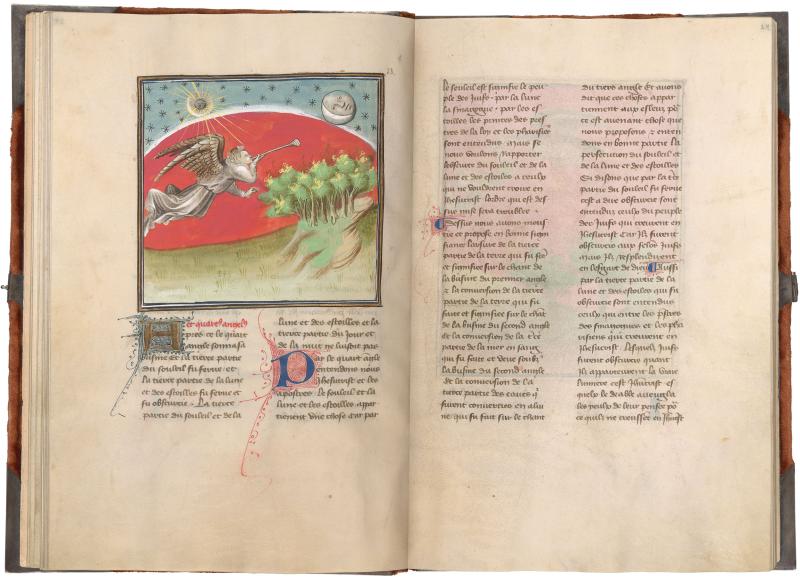 le quart angele
pres ce le quart
angele sonna sa
busine et la tierce partie
du souleil fu ferue et
la tierce partie de la lune
et des estoilles fu ferue et
fu obscurcie. La tierce
partie du souleil et de la
lune et des estoilles et la
tierce partie du jour et
de la nuit ne luisit pas
Par le quart angle
entendons nous
Jhesucrist et les
apostres. Le souleil et la
lune et les estoilles appar
tienent une chose Car par
le souleil est signifie le peu
ple des Juifs par la lune
la sinagogue. par les es
toilles les princes des pres
tres de la loy et les pharisies
sont entendus. Mais se
nous voulons rapporter
lobscurte du souleil et de la
lune et des estoilles a ceulx
qui ne voudrent croire en
Jhesucrist lordre qui est des
sus mise sera troublee.
Dessus nous avons mous
tre et propose en bonne signi
fiance larsure de la tierce
partie de la terre qui fu fte
et signifiee sur le chant de
la busine du premier angle
a la conversion de la tierce
partie de la terre qui fu
faite et signifiee sur le chant
de la busine du second angle
et la conversion de la tce
partie de la mer en sang
qui fu faite et
la busine du second angle
et de la conversion de la
tierce partie des eaues q
furent converties en aluy
ne qui fu fait sur le chant
du tiers angle Et avons
dit que ces choses appar
tiennent aux esleuz po
ce est avenant chose que
nous proposons et enten
dons en bonne partie la
percucion du souleil et de
la lune et des estoilles
Et disons que par la tce
partie du souleil fu ferue
cest a dire obscurcie sont
entendus ceulx du peuple
des Juifs qui creurent en
Jhesucrist Car Ilz furent
obscurcis aux felons Juifs
Mais Ilz resplendirent
en leglise de dieu Aussi
par la tierce partie de la
lune et des estoilles qui fu
obscurcie sont entendus
ceulx qui entre les prstres
des sinagogues et les pha
risiens qui creurent en
Jhesucrist. Lesquelz Juifs
furent obscurcis quant
Il apparurent la vraie
lumiere cest Jhucrist es
quelx le deable aveugla
les
ce quilz ne creussent en Jhucrist